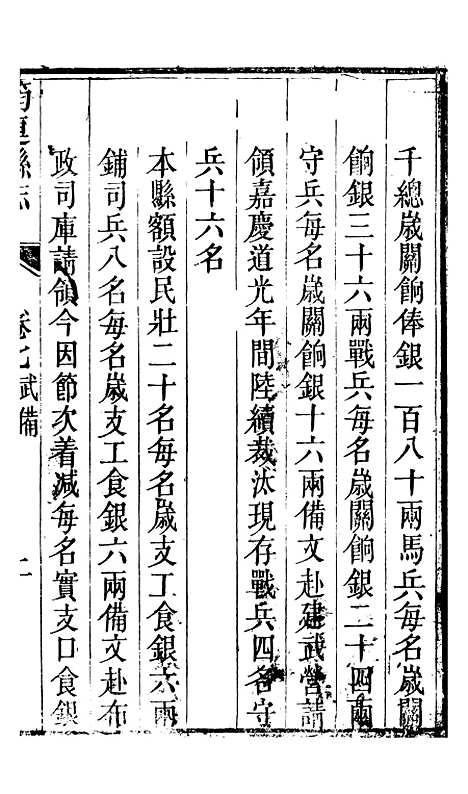 千總歲關餉俸銀一百八十兩馬兵每名歲關
餉銀三十六兩戰兵每名歲關餉銀二十四兩
守兵每名歲關餉銀十六兩備文赴建武營請
領嘉慶道光年間陸續裁汰現存戰兵四名守
兵十六名
本縣額設民壯二十名每名歲支工食銀六兩
鋪司兵八名每名歲支工食銀六兩備文赴布
政司庫請領今因節次着減每名實支口食銀
縣志 卷七武備 二